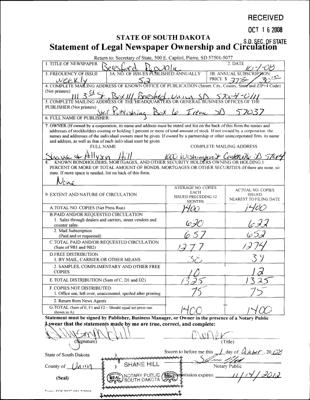 RECEIVED
OCT 16 2008
S.D. SEC. OF STATE
STATE OF SOUTH DAKOTA
Statement of Legal Newspaper Ownership and Circulation
Return to: Secretary of State, 500 E. Capitol, Pierre, SD 57501-5077
1. TITLE OF NEWSPAPER
2. DATE
Beresford Republic
10-1-08
3. FREQUENCY OF ISSUE
3A. NO. OF ISSUES PUBLISHED ANNUALLY
3B. ANNUAL SUBSCRIPTION
PRICE $
weekly
52
4. COMPLETE MAILING ADDRESS OF KNOWN OFFICE OF PUBLICATION (Street, City, County, State and ZIP+4 Code)
(Not printers)
5. COMPLETE MAILING ADDRESS OF THE HEADQUARTERS OR GENERAL BUSINESS OFFICES OF THE
PUBLISHER (Not printers)
Box 6 Irene SD 57037
6. FULL NAME OF PUBLISHER
7. OWNER (If owned by a corporation, its name and address must be stated and list on the back of this form the names and
addresses of stockholders owning or holding 1 percent or more of total amount of stock. If not owned by a corporation, the
names and addresses of the individual owners must be given. If owned by a partnership or other unincorporated firm, its name
and address, as well as that of each individual must be given.
FULL NAME
COMPLETE MAILING ADDRESS
Shane & Allyson Hill
8. KNOWN BONDHOLDERS, MORTGAGES, AND OTHER SECURITY HOLDERS OWNING OR HOLDING 1
PERCENT OR MORE OF TOTAL AMOUNT OF BONDS, MORTGAGES OR OTHER SECURITIES (if there are none, so
state. If more space is needed, list on back of this form.
None
9. EXTENT AND NATURE OF CIRCULATION
AVERAGE NO. COPIES
EACH
ISSUES PRECEDING 12
MONTHS
ACTUAL NO. COPIES
ISSUED
NEAREST TO FILING DATE
A. TOTAL NO. COPIES (Net Press Run)
1400
1400
B. PAID AND/OR REQUESTED CIRCULATION
1. Sales through dealers and carriers, street vendors and
counter sales
620
622
2. Mail Subscription
(Paid and or requested)
657
652
C. TOTAL PAID AND/OR REQUESTED CIRCULATION
(Sum of 9B1 and 9B2)
1277
1274
D. FREE DISTRIBUTION
1. BY MAIL, CARRIER OR OTHER MEANS
2. SAMPLES, COMPLIMENTARY AND OTHER FREE
COPIES
10
12
E. TOTAL DISTRIBUTION (Sum of C, D1 and D2)
1325
1325
F. COPIES NOT DISTRIBUTED
1. Office use, left over, unaccounted, spoiled after printing
75
75
2. Return from News Agents
G. TOTAL (Sum of E, F1 and F2 - Should equal net press run
shown in A)
1400
1400
Statement must be signed by Publisher, Business Manager, or Owner in the presence of a Notary Public
I swear that the statements made by me are true, correct, and complete:
Owner
(Signature)
(Title)
State of South Dakota
Sworn to before me this 1 day of October, 2008
County of Union
SHANE HILL
Notary Public
(Seal)
SEAL
NOTARY PUBLIC
SOUTH DAKOTA
SEAL
expires: 11/14/2012